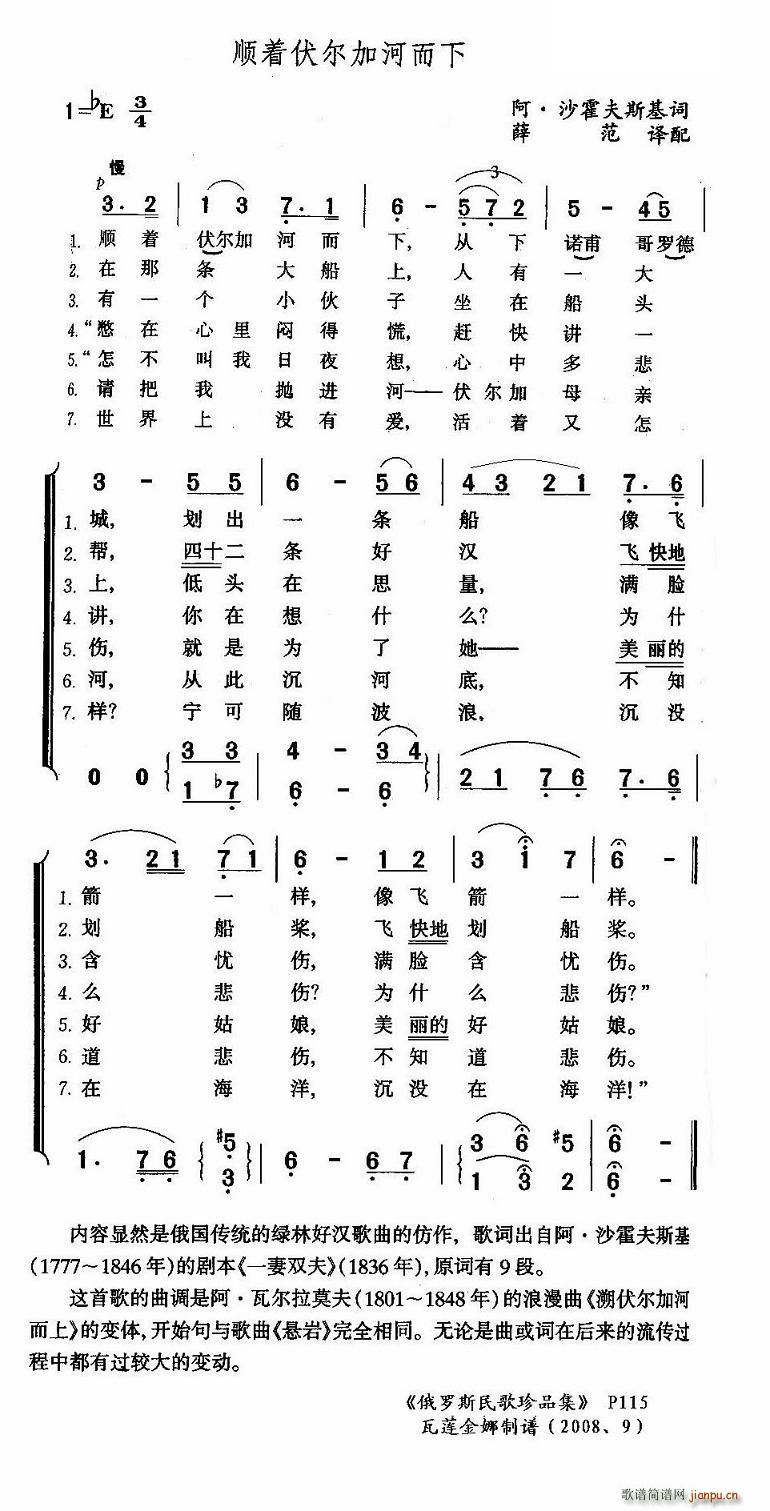 顺着伏尔加河而下
1=♭E 3/4
阿·沙霍夫斯基词
薛 范 译配
慢
p
3
3. 2 | 1 3 7. 1 | 6 - 5 7 2 | 5 - 4 5
1. 顺着伏尔加河而下，从下诺甫哥罗德
2. 在那条大船上，人有一大
3. 有一个小伙子坐在船头
4. “憋在心里闷得慌，赶快讲一
5. “怎不叫我日夜想，心中多悲
6. 请把我抛进河——伏尔加母亲
7. 世界上没有爱，活着又怎
3 - 5 5 | 6 - 5 6 | 4 3 2 1 7. 6
1. 城，划出一条船像飞
2. 帮，四十二条好汉飞快地
3. 上，低头在思量，满脸
4. 讲，你在想什么？为什
5. 伤，就是为了她——美丽的
6. 河，从此沉河底，不知
7. 样？宁可随波浪，沉没
3 3 | 4 - 3 4
0 0 1 ♭7 | 6 - 6 | 2 1 7 6 7. 6
3. 2 1 7 1 | 6 - 1 2 | 3 i 7 | 6 -
1. 箭一样，像飞箭一样。
2. 划船桨，飞快地划船桨。
3. 含忧伤，满脸含忧伤。
4. 么悲伤？为什么悲伤？”
5. 好姑娘，美丽的好姑娘。
6. 道悲伤，不知道悲伤。
7. 在海洋，沉没在海洋！”
#5 3 6 #5 6 -
1. 7 6 3 | 6 - 6 7 | 1 3 2 6 -
内容显然是俄国传统的绿林好汉歌曲的仿作，歌词出自阿·沙霍夫斯基
(1777～1846年)的剧本《一妻双夫》(1836年)，原词有9段。
这首歌的曲调是阿·瓦尔拉莫夫(1801～1848年)的浪漫曲《溯伏尔加河
而上》的变体，开始句与歌曲《悬岩》完全相同。无论是曲或词在后来的流传过
程中都有过较大的变动。
《俄罗斯民歌珍品集》 P115
瓦莲金娜制谱(2008、9)
歌谱简谱网
jianpu.cn